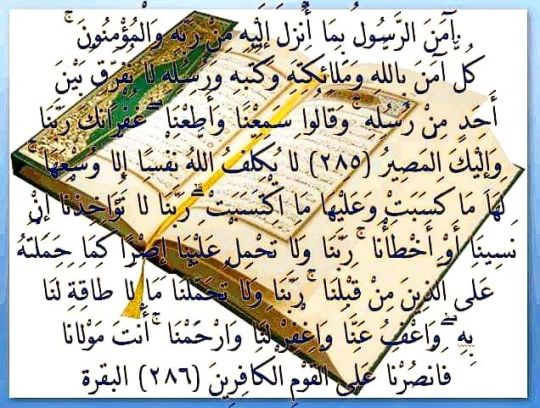 آمَنَ الرَّسُولُ بِمَا أُنْزِلَ إِلَيْهِ مِنْ رَبِّهِ وَالْمُؤْمِنُونَ ۚ
كُلٌّ آمَنَ بِاللهِ وَمَلَائِكَتِهِ وَكُتُبِهِ وَرُسُلِهِ لَا نُفَرِّقُ بَيْنَ
أَحَدٍ مِنْ رُسُلِهِ ۚ وَقَالُوا سَمِعْنَا وَأَطَعْنَا ۖ غُفْرَانَكَ رَبَّنَا
وَإِلَيْكَ الْمَصِيرُ (٢٨٥) لَا يُكَلِّفُ اللهُ نَفْسًا إِلَّا وُسْعَهَا ۚ
لَهَا مَا كَسَبَتْ وَعَلَيْهَا مَا اكْتَسَبَتْ ۗ رَبَّنَا لَا تُؤَاخِذْنَا إِنْ
نَسِينَا أَوْ أَخْطَأْنَا ۚ رَبَّنَا وَلَا تَحْمِلْ عَلَيْنَا إِصْرًا كَمَا حَمَلْتَهُ
عَلَى الَّذِينَ مِنْ قَبْلِنَا ۚ رَبَّنَا وَلَا تُحَمِّلْنَا مَا لَا طَاقَةَ لَنَا
بِهِ ۖ وَاعْفُ عَنَّا وَاغْفِرْ لَنَا وَارْحَمْنَا ۚ أَنْتَ مَوْلَانَا
فَانْصُرْنَا عَلَى الْقَوْمِ الْكَافِرِينَ (٢٨٦) البقرة